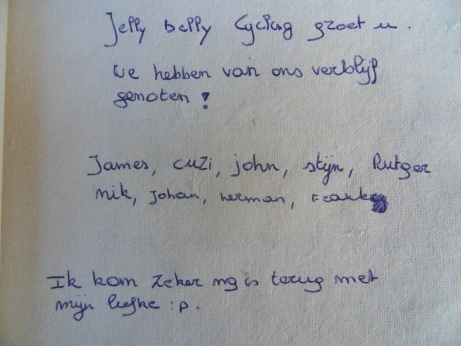 Jelly Belly Cycling groet u.
We hebben van ons verblijf
genoten !
James, cuzi, john, stijn, Rutger
nik, Johan, herman, Frank
Ik kom zeker ng is terug met
mijn liefke :p.